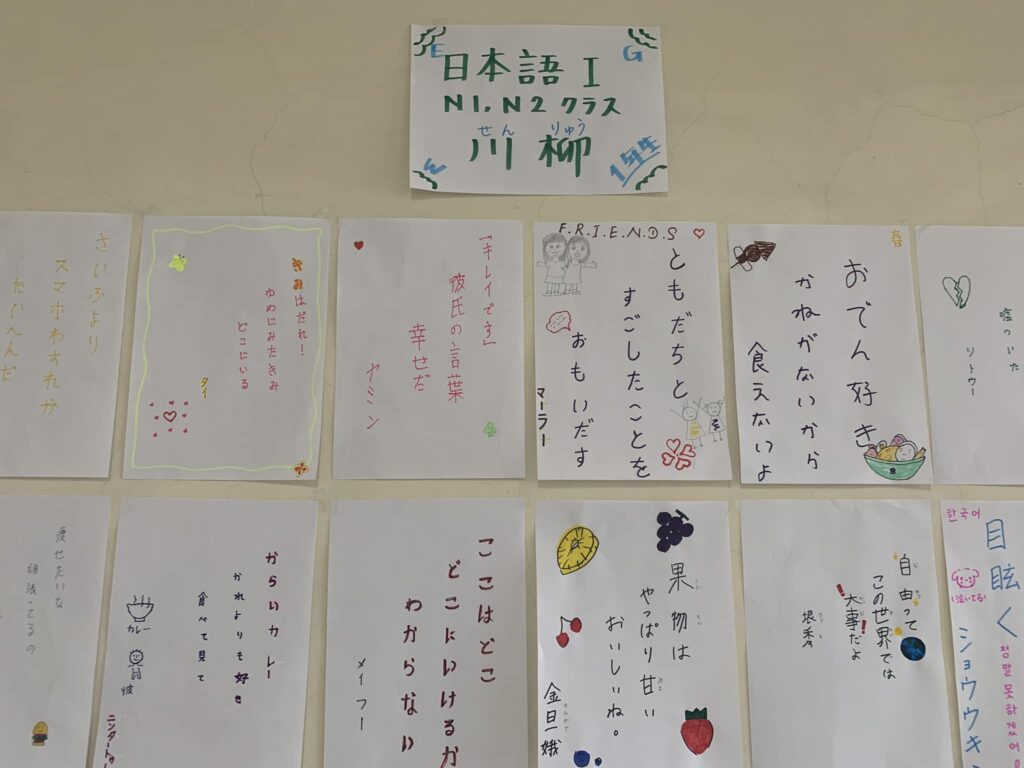 E
G
日本語 I
N1, N2 クラス
せん りゅう
川柳
1年生
さいふより
スマホわすれか
たいへんだ
きみはだれ!
ゆめにみたきみ
どこにいる
タイ
「キレイです」
彼氏の言葉
幸せだ
ヤミン
F.R.I.E.N.D.S
ともだちと
すごしたことを
おもいだす
マーラー
春
おでん好き
かねがないから
食えないよ
嘘ついた
シトウー
痩せたいな
頑張ってるの
からいカレー
かれよりも好き
食べて見て
カレー
彼
ここはどこ
どこにいけるか
わからない
メイフー
果物は
やっぱり甘い
おいしいね。
金旦娥
自由って
この世界では
大事だよ
한국어
目眩く
(泣いてる)
정말 못하겠어
ショウウキン